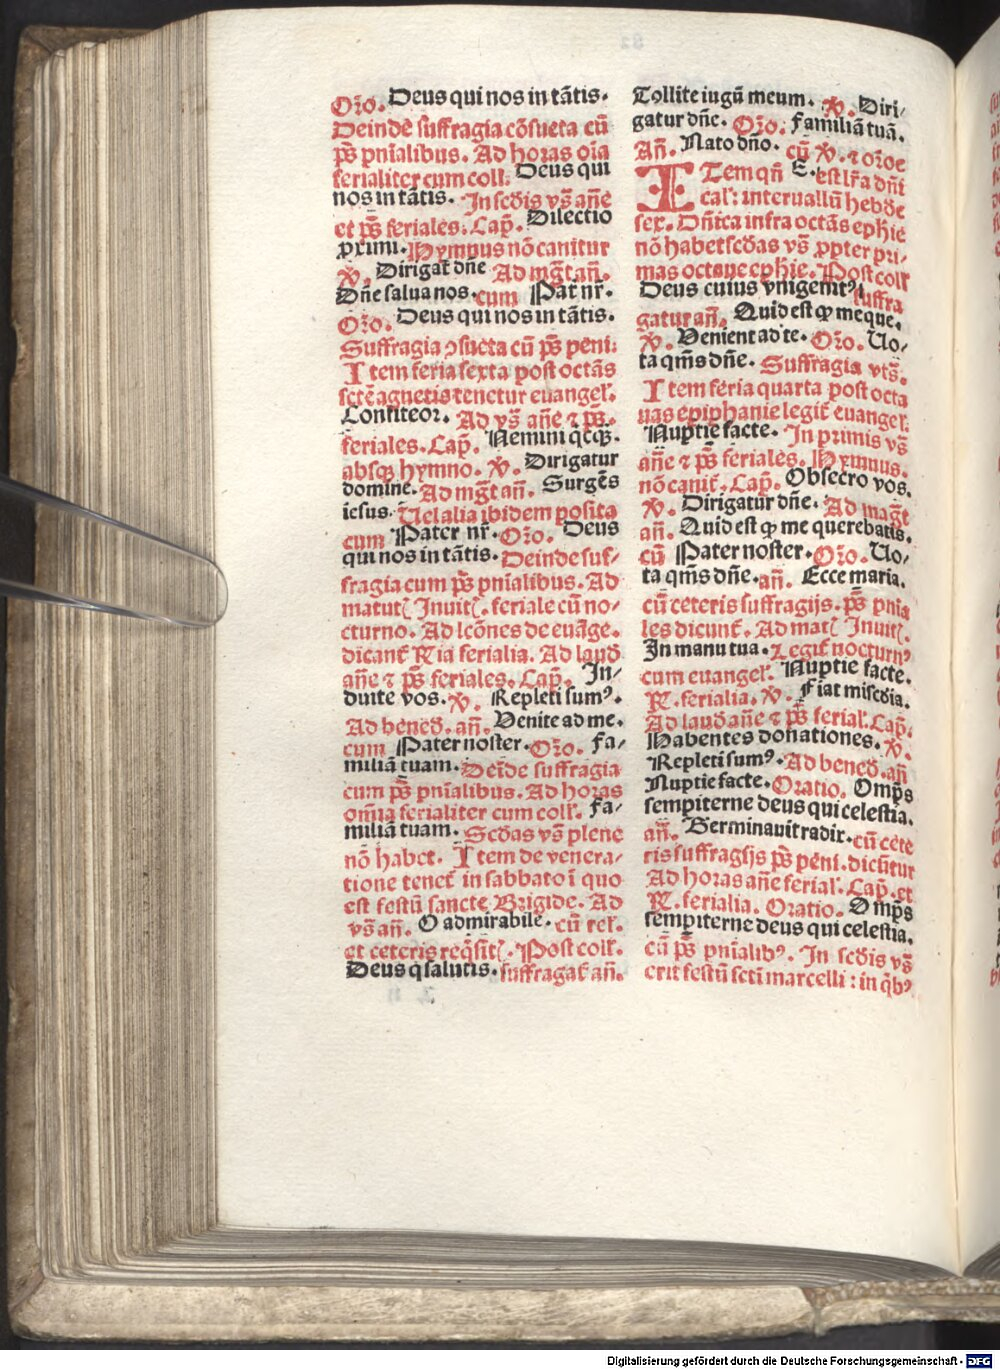 Oro̅. Deus qui nos in ta̅tis.
Deinde̅ suffragia co̅sueta cu̅
ps̅ pni̅alibus. Ad horas oi̅a
ferialiter cum coll. Deus qui
nos in ta̅tis. In sc̅dis vs̅ an̅e
et ps̅ feriales. Cap̅. Dilectio
ꝓximi. Hympnus no̅ canitur
℣. Dirigat̅ dn̅e Ad mg̅t an̅.
Dn̅e salua nos. cum Pat̅ nr̅.
Oro̅. Deus qui nos in ta̅tis.
Suffragia ꝯsueta cu̅ ps̅ peni.
Item feria sexta post octa̅s
sc̅te̅ agnetis tenetur euangel̅.
Confiteor. Ad vs̅ an̅e ⁊ ps̅.
feriales. Cap̅. Nemini qc̅qꝫ.
absqꝫ hymno. ℣. Dirigatur
domine. Ad mg̅t an̅. Surge̅s
iesus. Uel alia ibidem posita
cum Pater nr̅. Oro̅. Deus
qui nos in ta̅tis. Deinde suf⸗
fragia cum ps̅ pni̅alibus. Ad
matut̅ Inuit̅. feriale cu̅ no⸗
cturno. Ad lco̅nes de eua̅ge.
dicant̅ R̅ia ferialia. Ad laud̅
an̅e ⁊ ps̅ feriales. Cap̅. In⸗
duite vos. ℣. Repleti sumꝰ.
Ad bened̅. an̅. Venite ad me.
cum Pater noster. Oro̅. Fa⸗
milia̅ tuam. Dei̅de suffragia
cum ps̅ pni̅alibus. Ad horas
omi̅a ferialiter cum coll̅. Fa⸗
milia̅ tuam. Sc̅das vs̅ plene
no̅ habet. Item de venera⸗
tione tenet̅ in sabbato i̅ quo
est festu̅ sancte Brigide. Ad
vs̅ an̅. O admirabile. cu̅ rel̅.
et ceteris req̅sit̅. Post coll̅.
Deus q̅ salutis. suffragat̅ an̅.
Tollite iugu̅ meum. ℣. Diri⸗
gatur dn̅e. Oro̅. Familia̅ tua̅.
An̅. Nato dn̅o. cu̅ ℣. ⁊ oro̅e
ITem qn̅ E. est lr̅a dn̅i
cal̅: interuallu̅ hebd̅e
sex. Dn̅ica infra octa̅s ephi̅e
no̅ habet sc̅das vs̅ ꝓpter pri⸗
mas octaue ephi̅e. Post coll̅
Deus cuius vnigenitꝰ. suffra
gatur an̅. Quid est ꝙ me que.
℣. Venient ad te. Oro̅. Uo⸗
ta qm̅s dn̅e. Suffragia vts̅.
Item feria quarta post octa
uas epiphanie legit̅ euangel̅.
Nuptie facte. In primis vs̅
an̅e ⁊ ps̅ feriales. Hymnus.
no̅ canit̅. Cap̅. Obsecro vos.
℣. Dirigatur dn̅e. Ad mag̅t
an̅. Quid est ꝙ me querebatis.
cu̅ Pater noster. Oro̅. Uo⸗
ta qm̅s dn̅e. an̅. Ecce maria.
cu̅ ceteris suffragijs. ps̅ pni̅a
les dicunt̅. Ad mat̅ Inuit̅.
In manu tua. Legit̅ nocturnꝰ
cum euangel̅. Nuptie facte.
R̅. ferialia. ℣. Fiat misc̅dia.
Ad laud̅ an̅e ⁊ ps̅ ferial̅. Cap̅.
Habentes donationes. ℣.
Repleti sumꝰ. Ad bened̅. an̅
Nuptie facte. Oratio. Omp̅s
sempiterne deus qui celestia.
an̅. Germinauit radix. cu̅ cete
ris suffragijs ps̅ peni. dicu̅tur
Ad horas an̅e ferial̅. Cap̅. et
R̅. ferialia. Oratio. Omp̅s
sempiterne deus qui celestia.
cu̅ ps̅ pni̅alibꝰ. In sc̅dis vs̅
erit festu̅ sc̅ti marcelli: in q̅bꝰ
Digitalisierung gefördert durch die Deutsche Forschungsgemeinschaft - DFG